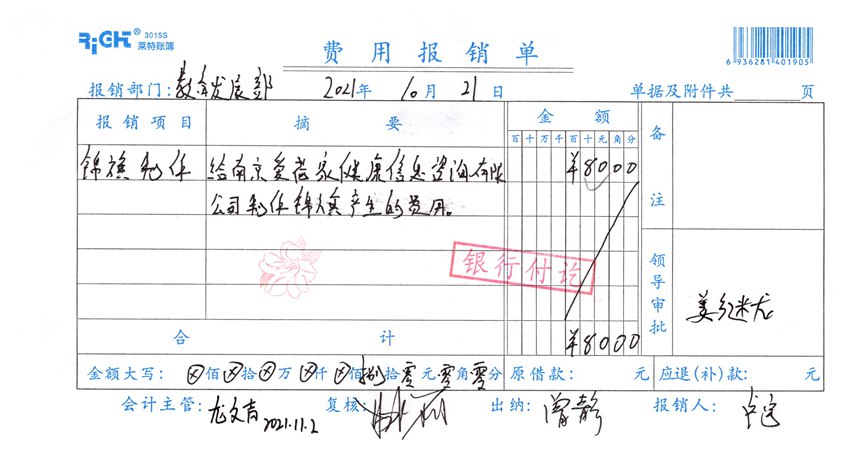 RiGHT® 3015S
莱特账簿
费用报销单
6 936281 401905
报销部门: 教育发展部 2021年 10月 21日 单据及附件共 页
报销项目 摘要 金额 备注
百十万千百十元角分
锦旗制作 给南京爱蓓家健康信息咨询有限 ¥8000
公司制作锦旗产生的费用。
银行付讫
领导审批
合计 ¥8000
金额大写: ⊗佰⊗拾⊗万⊗仟⊗佰捌拾零元零角零分 原借款: 元 应退(补)款: 元
会计主管: 龙文青 2021.11.2 复核: 出纳: 曾静 报销人: